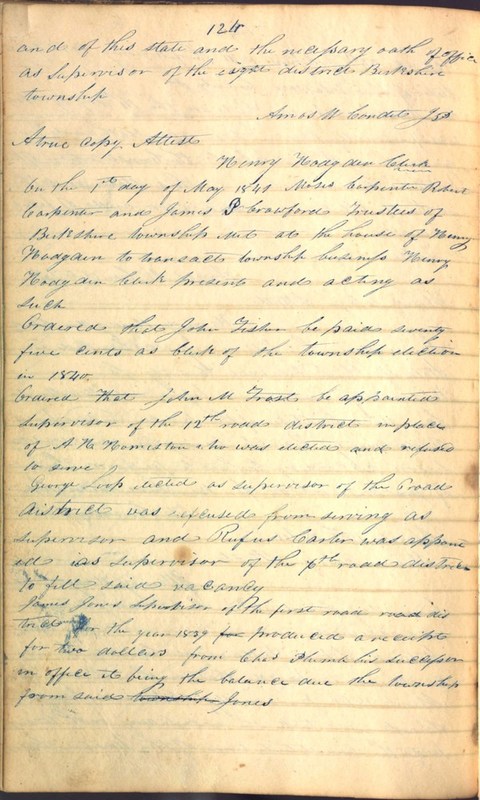 124
and of this state and the necessary oath of office
as Supervisor of the eight district Berkshire
township
Amos H Condit
A true Copy Attest
Henry Hodgden Clerk
On the 1st day of May 1841 Moses Carpenter Robert
Carpenter and James P Crawford Trustees of
Berkshire township Met at the house of Henry
Hodgden to transact township business Henry
Hodgden Clerk present and acting as
Such
Ordered that John Fisher be paid seventy
five cents as Clerk of the township election
in 1840
Ordered that John M Frost be appointed
Supervisor of the 12th road district in place
of A H who was elected and refused
to serve
George Loop elected as supervisor of the road
district was excused from serving as
supervisor and Rufus Carter was appoint
ed as supervisor of the 6th road district
to fill said vacancy
James Jones Supervisor of the first road road dis
trict for the year 1839 for produced a receipt
for two dollars from Plumb his successor
in office it being the balance due the township
from said township Jones